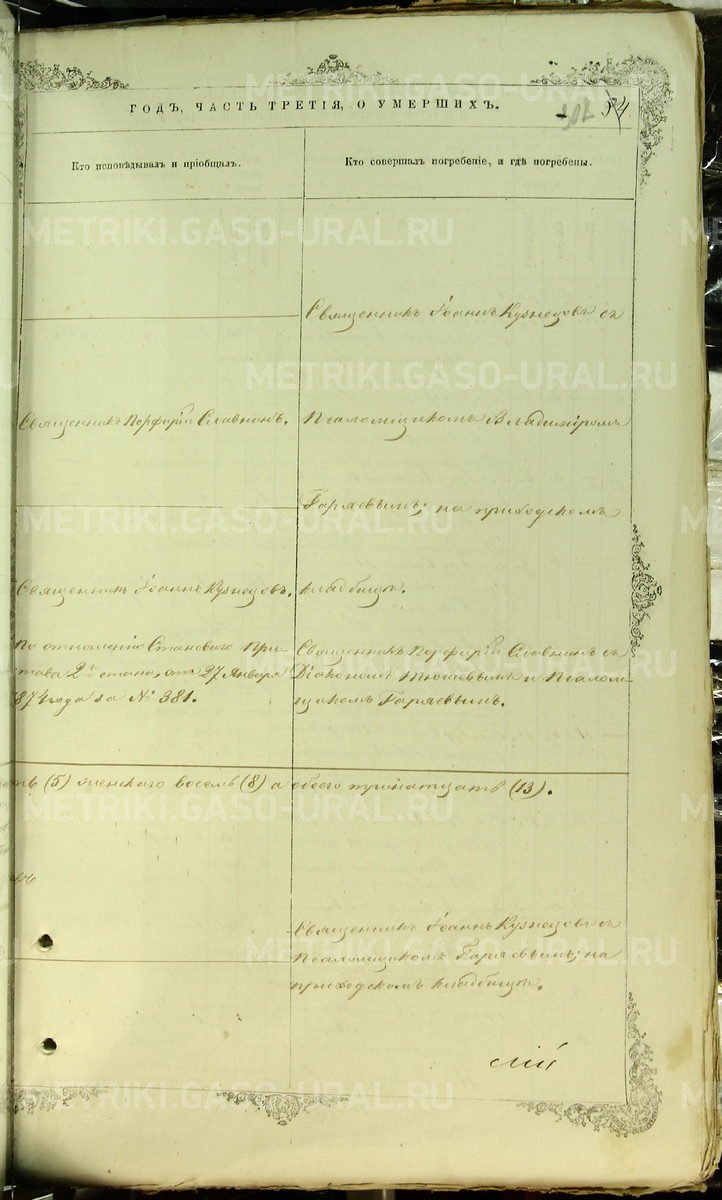 ГОДЪ, ЧАСТЬ ТРЕТІЯ, О УМЕРШИХЪ.
54
Кто исповѣдывалъ и пріобщалъ.
Кто совершалъ погребеніе, и гдѣ погребены.
Священникъ Іоаннъ Кузнецовъ съ
Священникъ Порфирій Славнинъ.
Псаломщикомъ Владиміромъ
Гаряевымъ; на приходскомъ
Священникъ Іоаннъ Кузнецовъ.
кладбищѣ.
По отношенію Становаго При-
става 2го стана, отъ 27 Января
1874 года за № 381.
Священникъ Порфирій Славнинъ съ
Діакономъ и Псалом-
щикомъ Гаряевымъ.
(5) женскаго восемь (8) а обоего тринатцать (13).
Священникъ Іоаннъ Кузнецовъ съ
Псаломщикомъ Гаряевымъ; на
приходскомъ кладбищѣ.
лій
METRIKI.GASO-URAL.RU